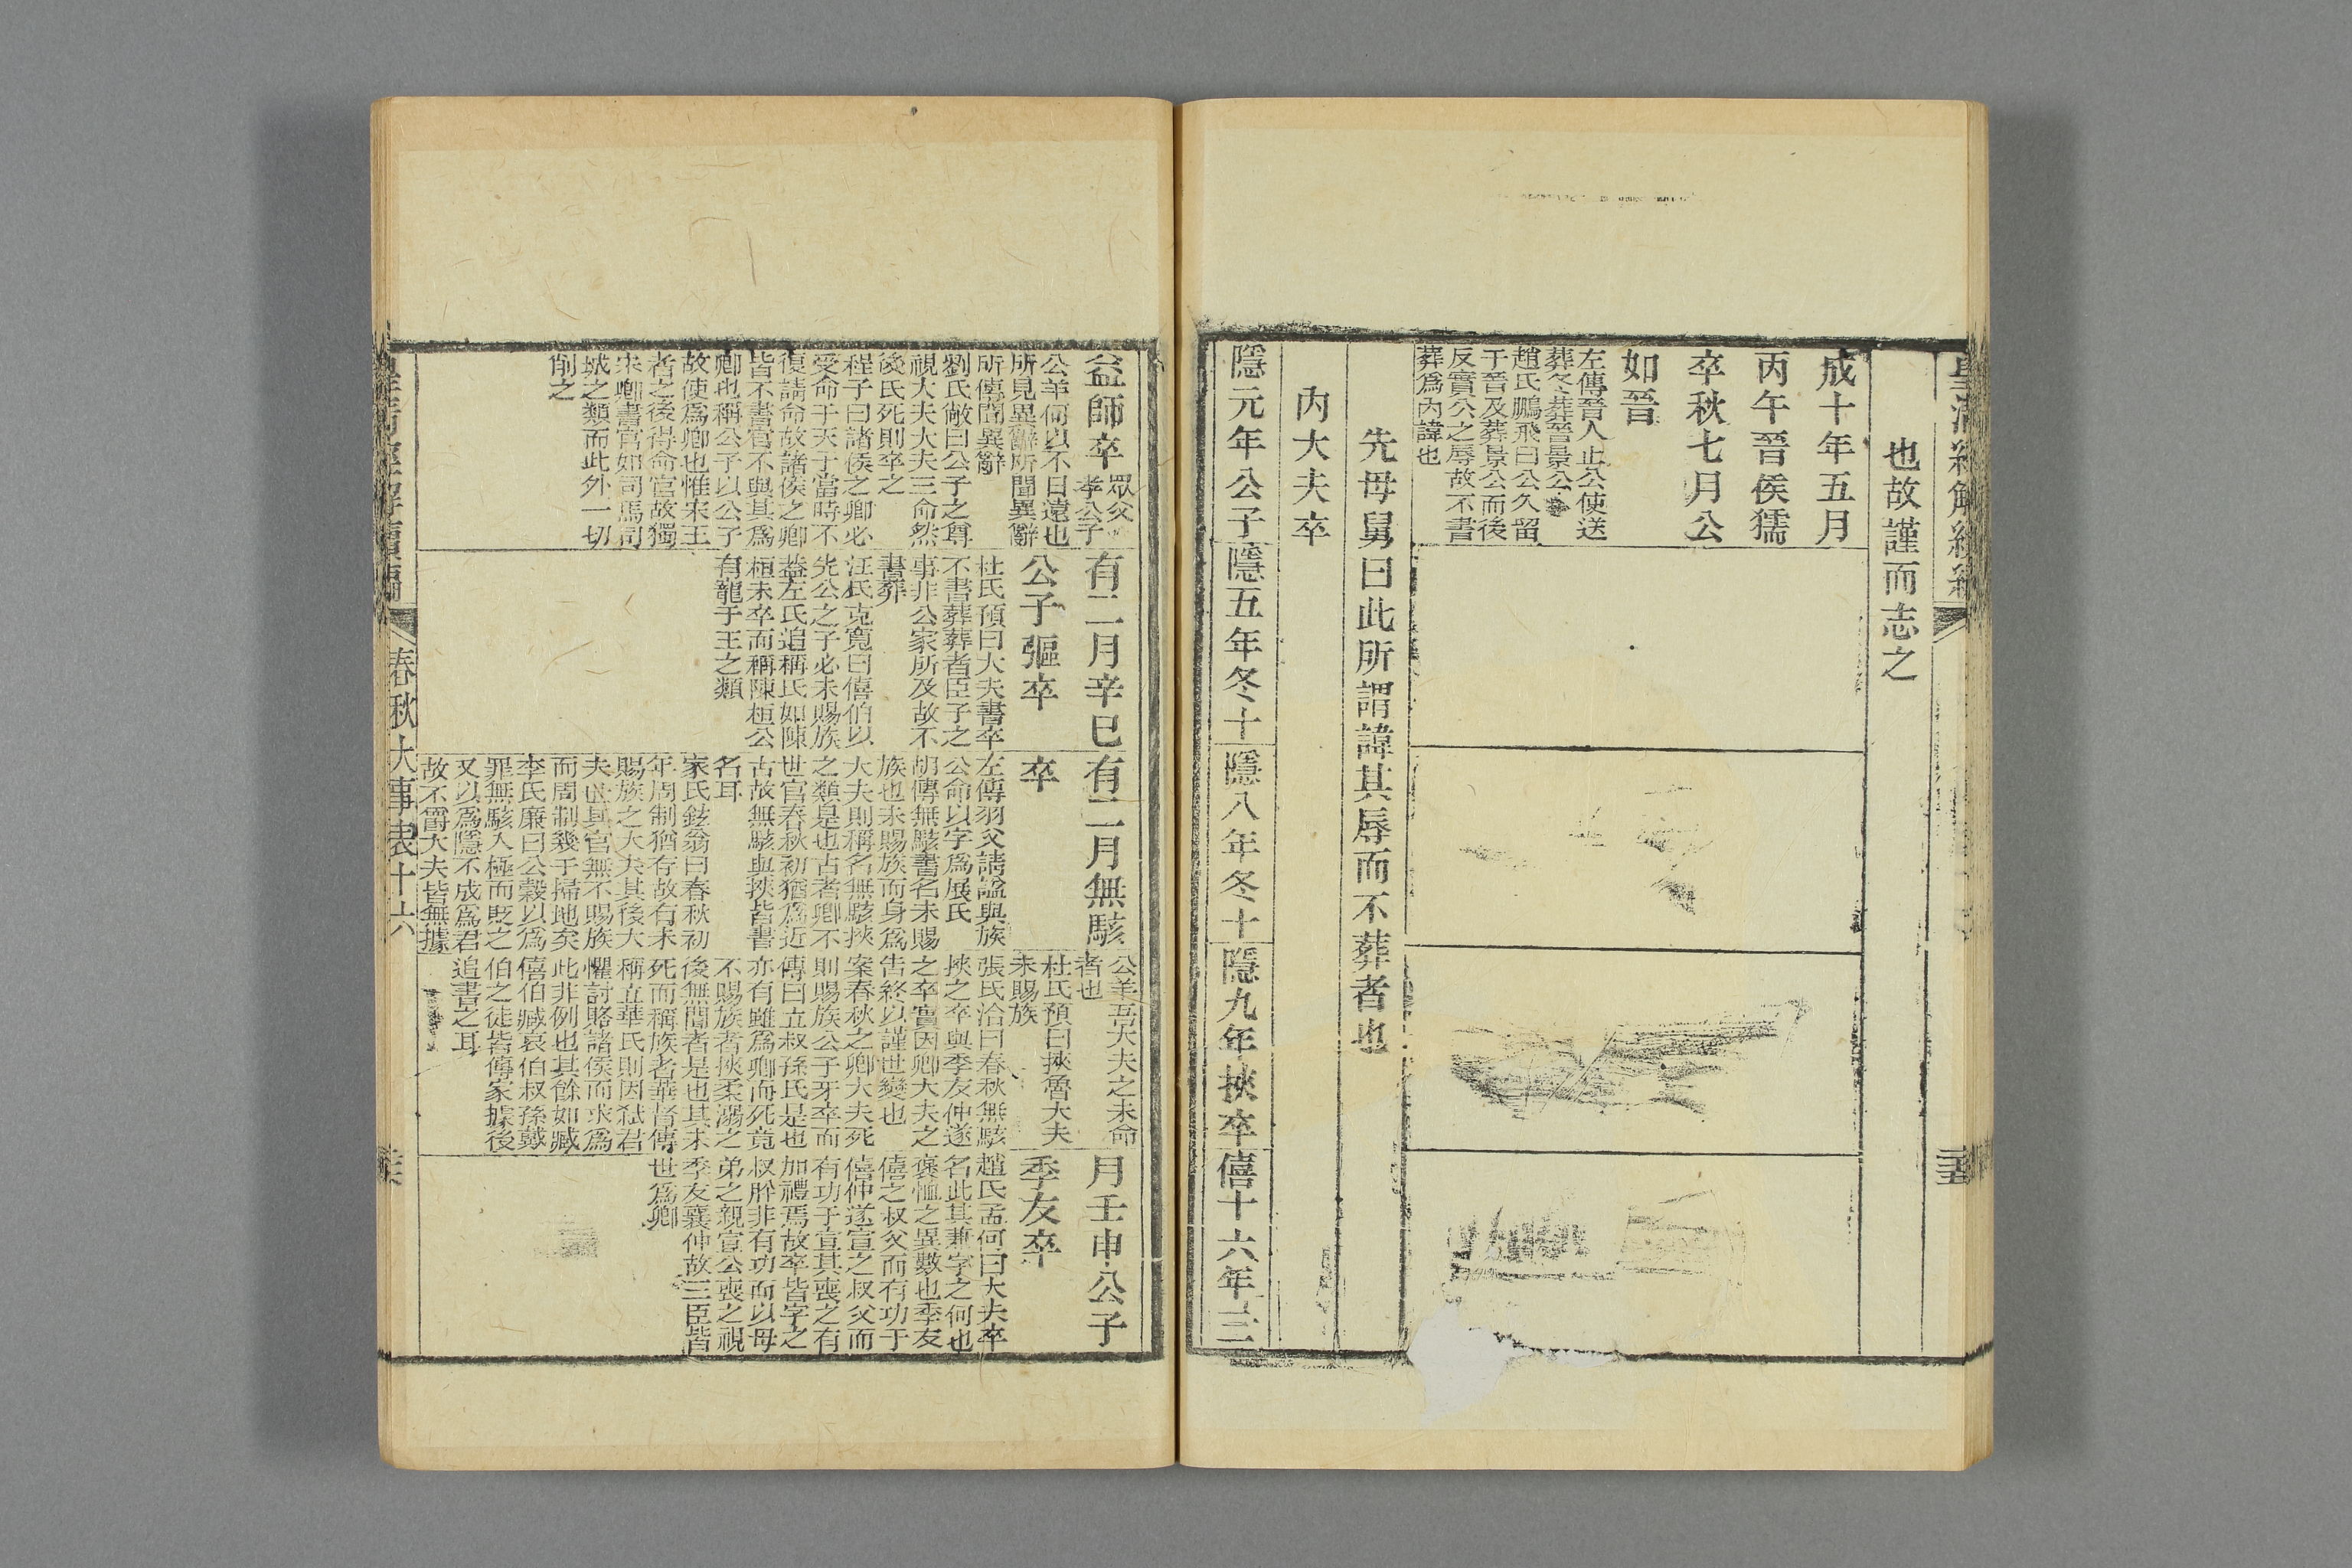 也故謹而志之
成十年五月
丙午晉侯獳
卒秋七月公
如晉
左傳晉人止公使送
葬冬葬晉景公
趙氏鵬飛曰公久留
于晉及葬景公而後
反實公之辱故不書
葬爲內諱也
先母舅曰此所謂諱其辱而不葬者也
內大夫卒
隱元年公子
隱五年冬十
隱八年冬十
隱九年挾卒
僖十六年三
益師卒
眾父
孝公子
公羊何以不日遠也
所見異辭所聞異辭
所傳聞異辭
劉氏敞曰公子之尊
視大夫大夫三命然
後氏死則卒之
程子曰諸侯之卿必
受命于天子當時不
復請命故諸侯之卿
皆不書官不與其爲
卿也稱公子以公子
故使爲卿也惟宋王
者之後得命官故獨
宋卿書官如司馬司
城之類而此外一切
削之
有二月辛巳
公子彄卒
杜氏預曰大夫書卒
不書葬葬者臣子之
事非公家所及故不
書葬
汪氏克寬曰僖伯以
先公之子必未賜族
葢左氏追稱氏如陳
桓未卒而稱陳桓公
有寵于王之類
有二月無駭
卒
左傳羽父請諡與族
公命以字爲展氏
胡傳無駭書名未賜
族也未賜族而身爲
大夫則稱名無駭挾
之類是也古者卿不
世官春秋初猶爲近
古故無駭與挾皆書
名耳
家氏鉉翁曰春秋初
年周制猶存故有未
賜族之大夫其後大
夫世其官無不賜族
而周制幾于掃地矣
李氏廉曰公穀以爲
罪無駭入極而貶之
又以爲隱不成爲君
故不爵大夫皆無據
公羊吾大夫之未命
者也
杜氏預曰挾魯大夫
未賜族
張氏洽曰春秋無駭
挾之卒與季友仲遂
之卒實因卿大夫之
告終以謹世變也
案春秋之卿大夫死
則賜族公子牙卒而
傳曰立叔孫氏是也
亦有雖爲卿而死竟
不賜族者挾柔溺之
後無聞者是也其未
死而稱族者華督傳
稱立華氏則因弒君
懼討賂諸侯而求爲
此非例也其餘如臧
僖伯臧哀伯叔孫戴
伯之徒皆傳家據後
追書之耳
月壬申公子
季友卒
趙氏孟何曰大夫卒
名此其兼字之何也
褒恤之異數也季友
僖之叔父而有功于
僖仲遂宣之叔父而
有功于宣其喪之有
加禮焉故卒皆字之
叔肸非有功而以母
弟之親宣公喪之視
季友襄仲故三臣皆
世爲卿
春秋大事表十六